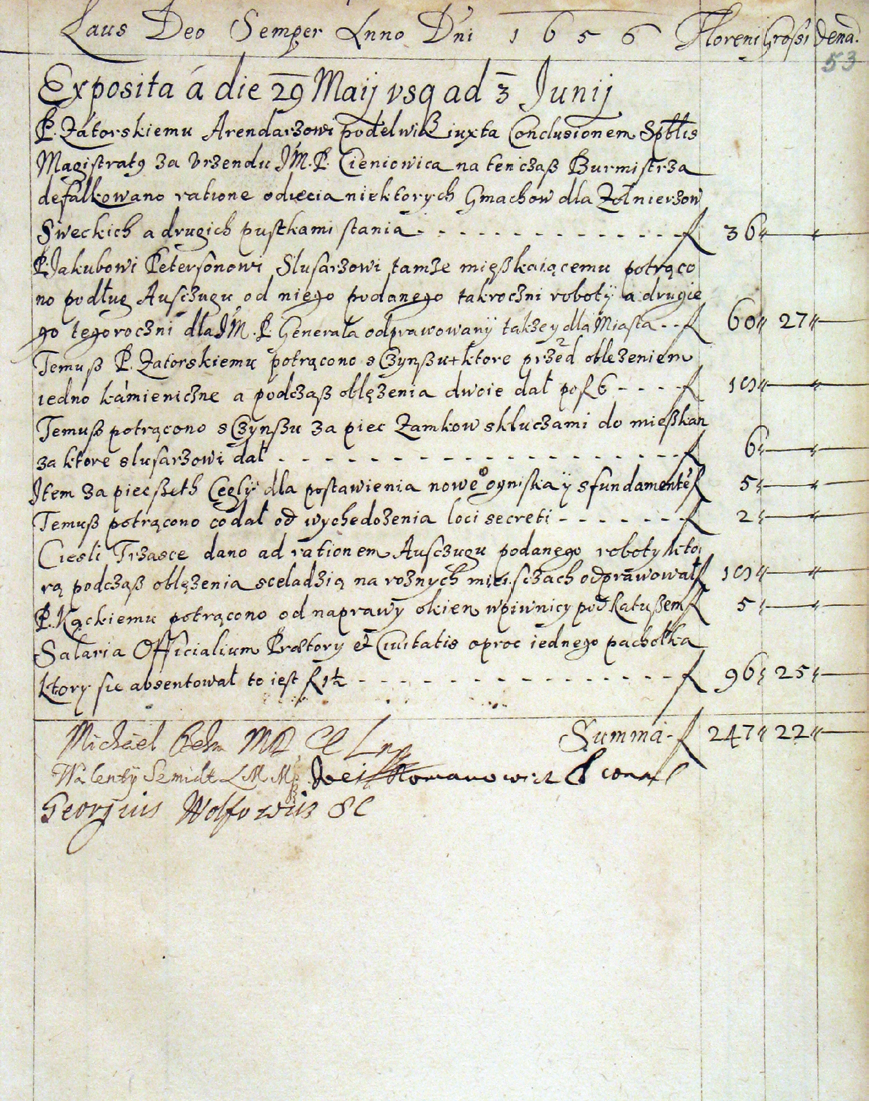 Laus Deo Semper Anno Dni 1656 Floreni Grossi Dena.
53
Exposita á die 29 Maij vsq ad 3 Junij
P. Zatorskiemu Arendarzowi podelwiß iuxta Conclusionem Spttis
Magistratq za vrzendu JM. P. Cieniowica na tenczaß Burmistrza
defalkowano ratione odięcia niektorych Gmachow dla Zołnierzow
Sweckich a drugich pustkami stania - - - - f 36
P. Jakubowi Petersonowi Slusarzowi tamże mięßkaiącemu potrąco
no podług Auszugu od niego podanego takroczni roboty a drugie
go tegoroczni dla JM. P. Generała odprawowany także y dla Miasta - - f 60 27
Temuß P. Zatorskiemu potrącono s Czynßu ktore przed oblężeniem
iedno kámieniczne a podczaß oblężenia dwoie dał po f 6 - - - f
Temuß potrącono s Czynßu za piec Zamkow skluczami do mießkan
za ktore slusarzowi dał - - - - f 6
Item za piecßeth Cegły dla postawienia nowe° ogniska y sfundamente f 5
Temuß potrącono co dał od wychedożenia loci secreti - - - - f 2
Ciesli Trzasce dano ad rationem Auszugu podanego roboty kto
rą podczaß oblężenia sceladzią na rożnych mieisczach odprawował f
P. Kąckiemu potrącono od naprawy okien wpiwnicy pod Ratußem f 5
Salaria Officialium Prætory et Ciuitatis oproc iednego pachołka
ktory się absentował to iest f 1½ - - - - f 96 25
Summa - f 247 22
Michael Behm
Walenty Semidt
Romanowicz
Georgius Wolfowicz SC